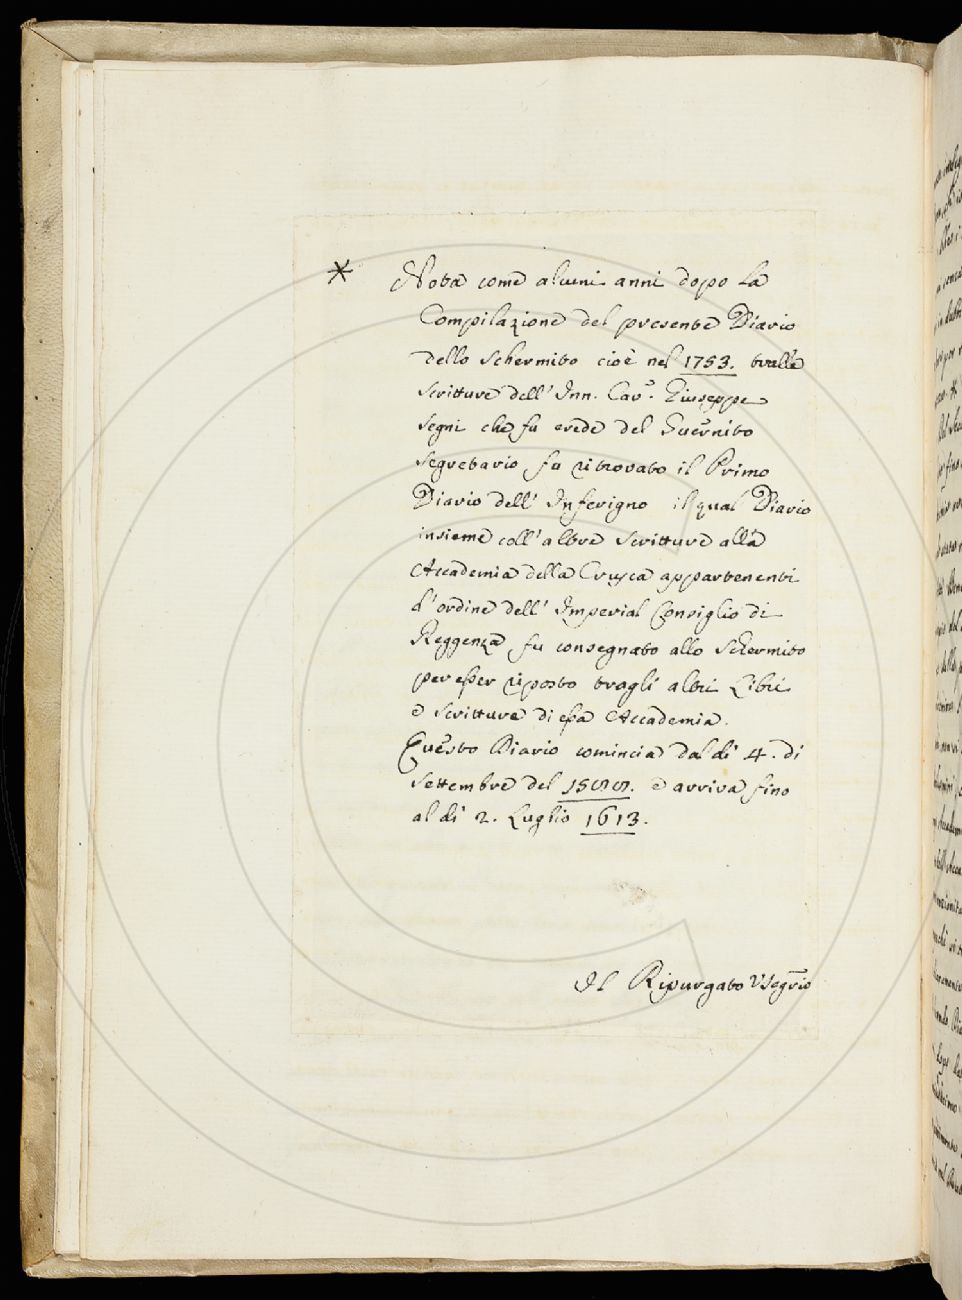 * Nota come alcuni anni dopo la
Compilazione del presente Diario
dello Schermito cioè nel 1753. tralle
scritture dell' Inn. Cav.ʳ Giuseppe
Segni che fu erede del Guernito
Segretario fu ritrovato il Primo
Diario dell' Inferigno il qual Diario
insieme coll' altre scritture alla
Accademia della Crusca appartenenti
d' ordine dell' Imperial Consiglio di
Reggenza fu consegnato allo Schermito
per esser riposto tragli altri Libri
e scritture di essa Accademia.
Questo Diario comincia dal dì 4. di
Settembre del 1588. e arriva fino
al dì 2. Luglio 1613.
Il Ripurgato VSegrio